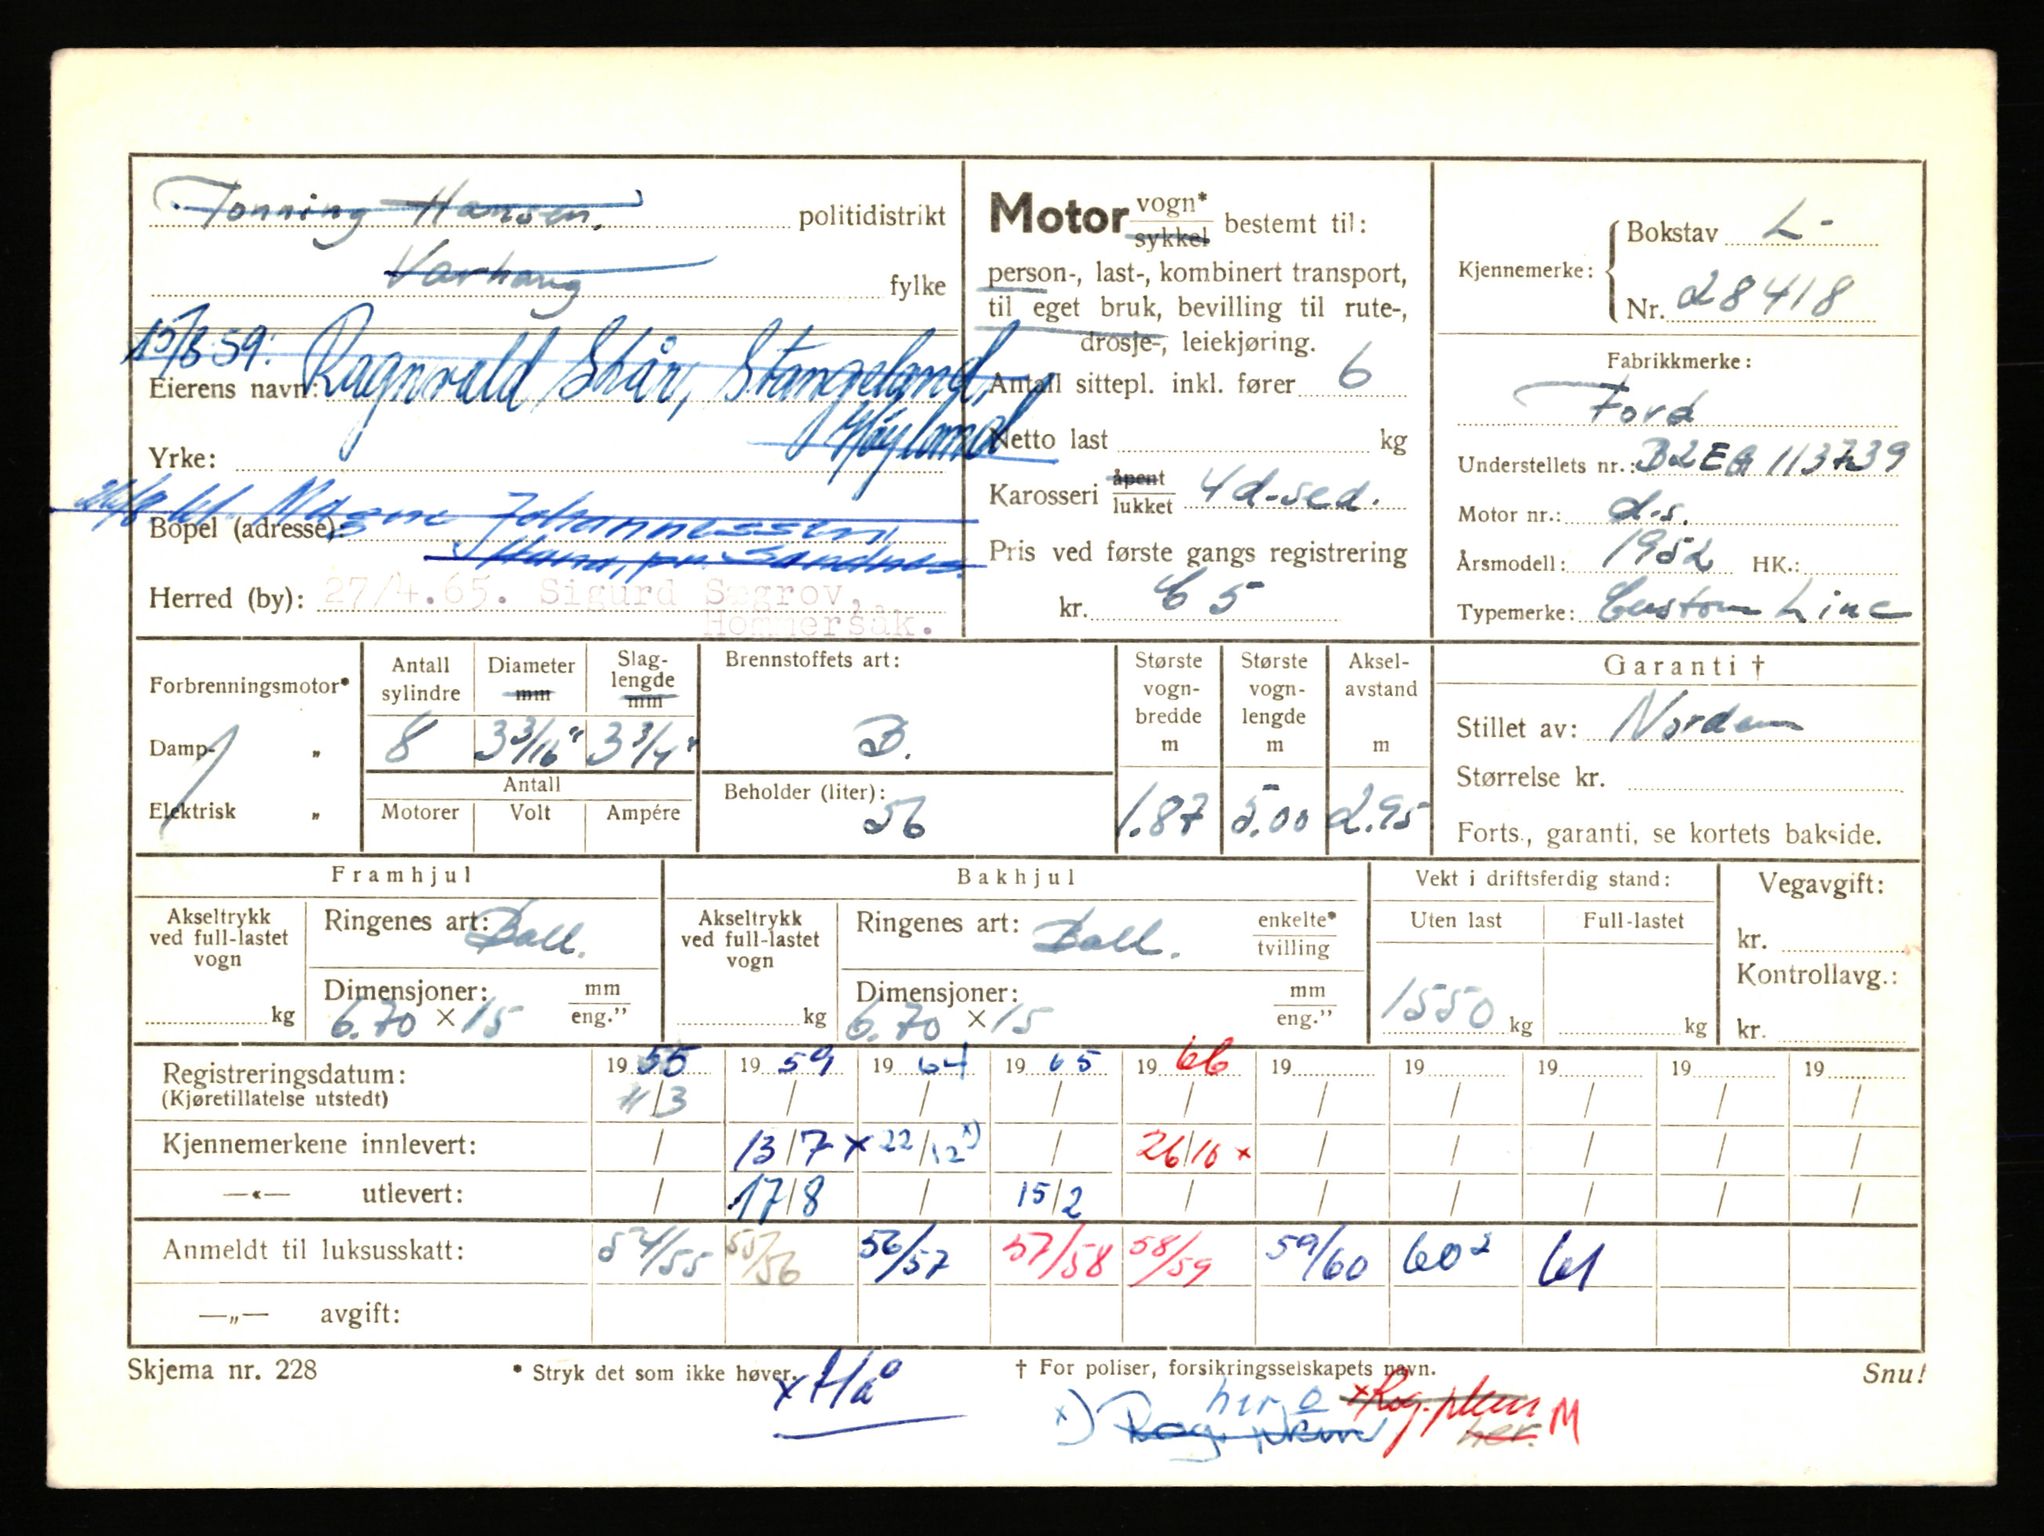 Tonning Hansen. politidistrikt
Varhaug fylke
15/8 59: Eierens navn: Ragnvald Skår, Stangeland,
Høyland
Yrke:
Bopel (adresse): Magne Johannessen,
Hana, pr. Sandnes.
Herred (by): 27/4.65. Sigurd Sægrov,
Hommersåk.
Motor vogn* / sykkel bestemt til:
person-, last-, kombinert transport,
til eget bruk, bevilling til rute-,
drosje-, leiekjøring.
Antall sittepl. inkl. fører 6
Netto last kg
Karosseri åpent / lukket 4d-sed.
Pris ved første gangs registrering
kr.
Kjennemerke: { Bokstav L-
Nr. 28418
Fabrikkmerke:
Ford
Understellets nr.: B2EA 113739
Motor nr.: d.s.
Årsmodell: 1952 HK.:
Typemerke: Custom Line
Forbrenningsmotor*
Damp- „
Elektrisk „
Antall sylindre 8
Diameter mm 3 3/16"
Slag-lengde mm 3 3/4"
Antall
Motorer Volt Ampére
Brennstoffets art:
B.
Beholder (liter):
56
Største vogn-bredde m 1.87
Største vogn-lengde m 5.00
Aksel-avstand m 2.95
Garanti †
Stillet av: Norden
Størrelse kr.
Forts., garanti, se kortets bakside.
Framhjul
Akseltrykk ved full-lastet vogn kg
Ringenes art: Ball.
Dimensjoner: mm / eng."
6.70 × 15
Bakhjul
Akseltrykk ved full-lastet vogn kg
Ringenes art: Ball. enkelte* / tvilling
Dimensjoner: mm / eng."
6.70 × 15
Vekt i driftsferdig stand:
Uten last Full-lastet
1550 kg kg
Vegavgift:
kr.
Kontrollavg.:
kr.
Registreringsdatum: 1955 1959 1964 1965 1966 19 19 19 19 19
(Kjøretillatelse utstedt) /3 / / / / / / / / /
Kjennemerkene innlevert: / 13/7 x 22/12 x) / 26/10 x / / / / /
—«— utlevert: / 17/8 / 15/2 / / / / / /
Anmeldt til luksusskatt: 54/55 55/56 56/57 57/58 58/59 59/60 60² 61
—„— avgift:
Skjema nr. 228 * Stryk det som ikke høver. † For poliser, forsikringsselskapets navn. Snu!
x Hå
her o x Rog.
x) Rog. her. M